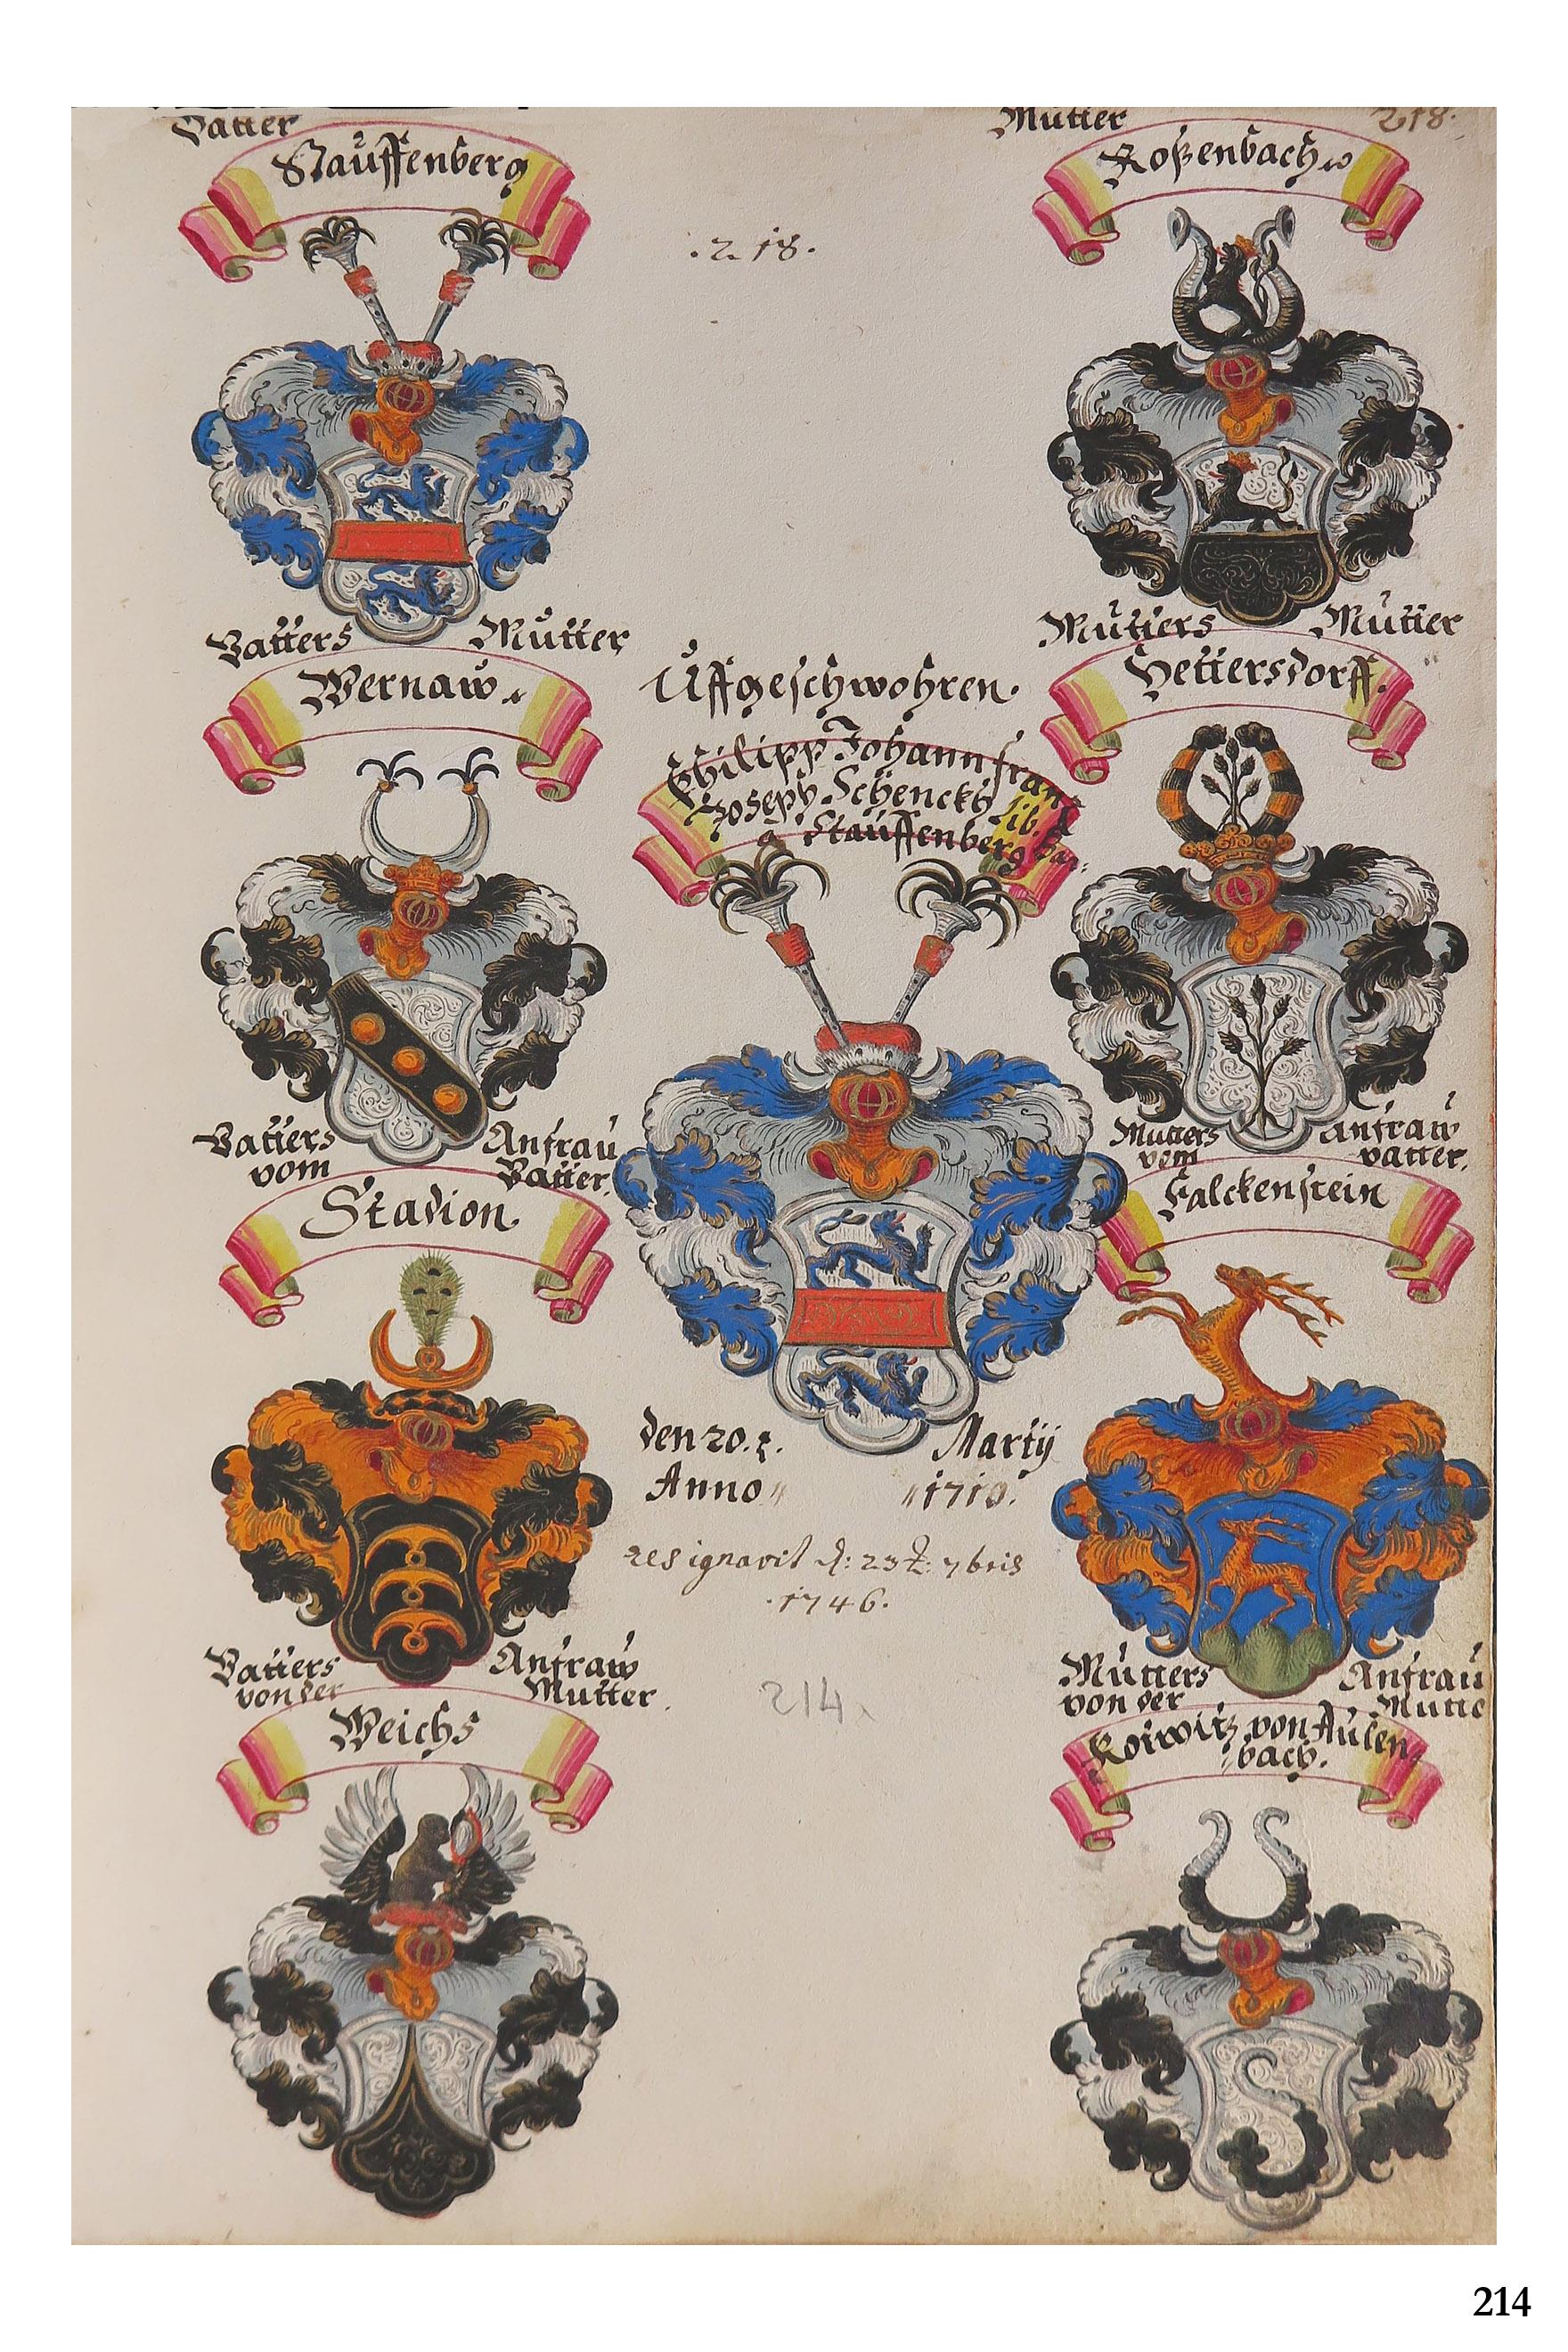 Vatter
Mutter
218.
Stauffenberg
Roßenbach
. 218 .
Vatters Mutter
Mutters Mutter
Wernaw.
Hettersdorff.
Uffgeschwohren.
Philipp Johann frantz
Joseph Schenckh lib. Bar.
a Stauffenberg
Vatters Anfrau
vom Vatter.
Mutters Anfraw
vom vatter.
Stadion.
Falckenstein
den 20. t. Martij
Anno 1719.
resignavit d: 23 t: 7bris
. 1746 .
Vatters Anfraw
von der Mutter.
Mutters Anfrau
von der Mutte
214
Weichs
Kotwitz von Aulen
bach.
214